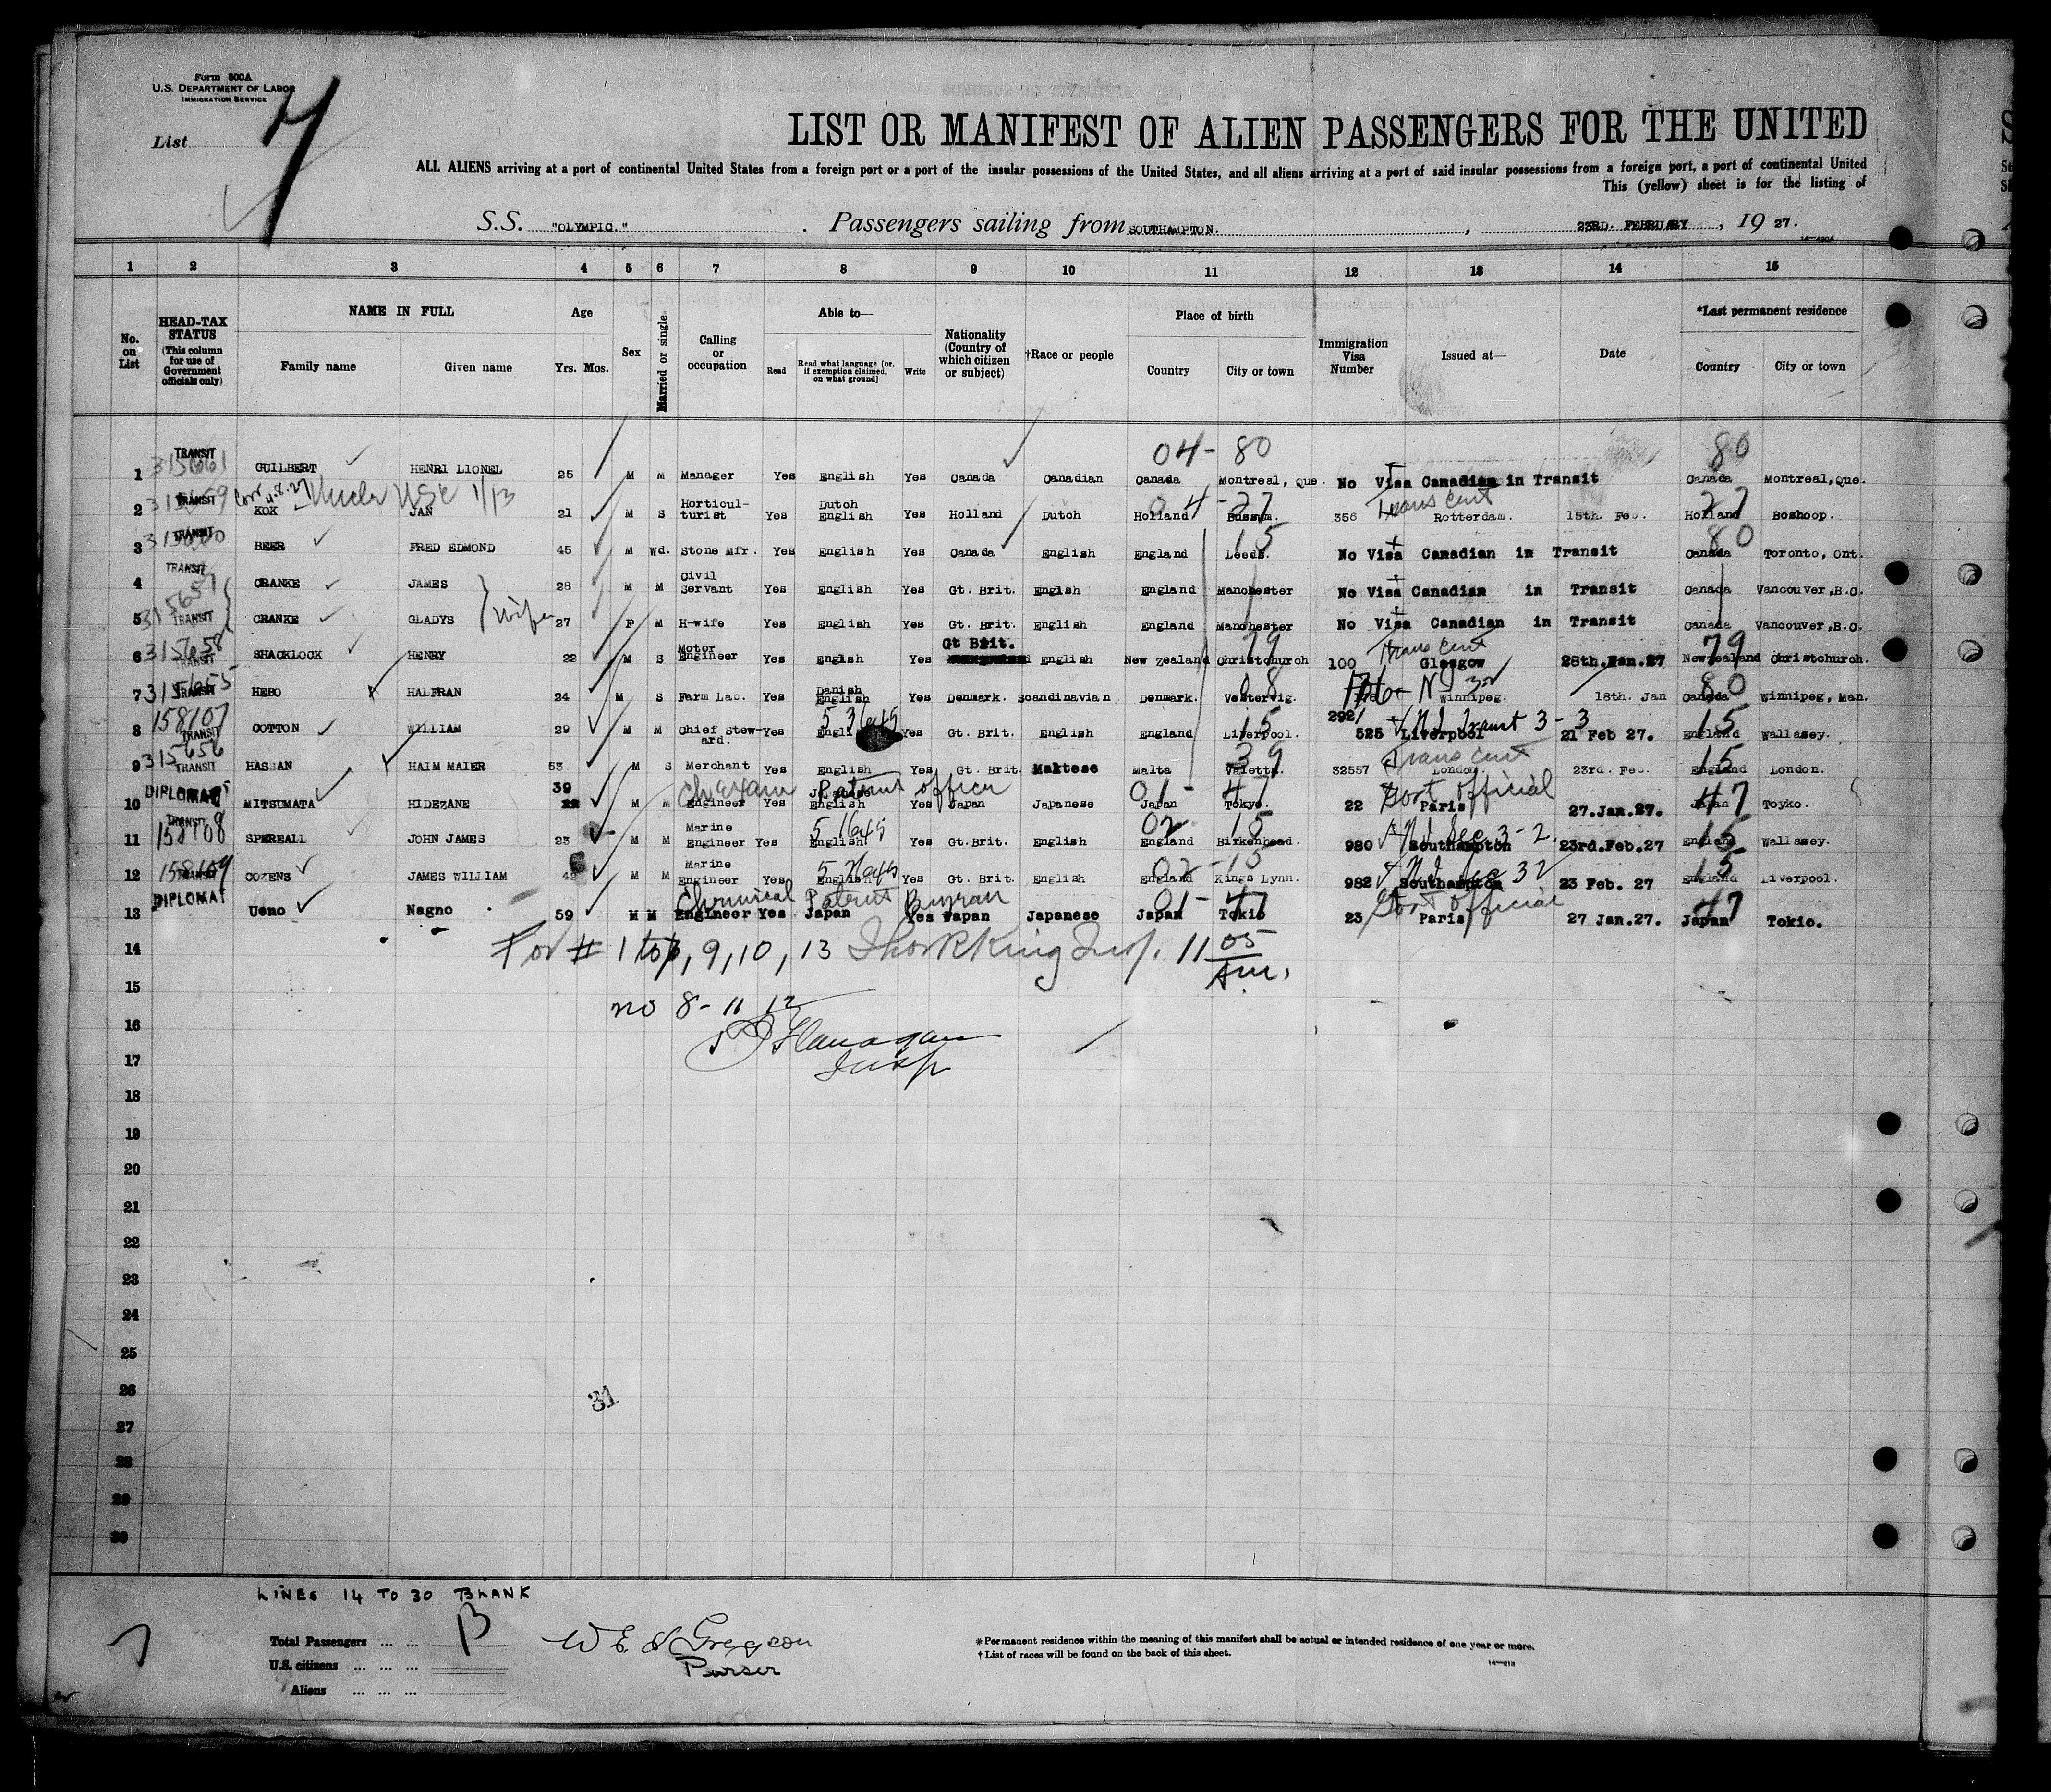 Form 500A
U.S. DEPARTMENT OF LABOR
IMMIGRATION SERVICE
List 7
LIST OR MANIFEST OF ALIEN PASSENGERS FOR THE UNITED
ALL ALIENS arriving at a port of continental United States from a foreign port or a port of the insular possessions of the United States, and all aliens arriving at a port of said insular possessions from a foreign port, a port of continental United
This (yellow) sheet is for the listing of
S.S. "OLYMPIC." Passengers sailing from SOUTHAMPTON. , 23RD. FEBRUARY , 19 27.
1 2 3 4 5 6 7 8 9 10 11 12 13 14 15
No. on List
HEAD-TAX STATUS (This column for use of Government officials only)
NAME IN FULL
Family name Given name
Age
Yrs. Mos.
Sex
Married or single
Calling or occupation
Able to—
Read Read what language (or, if exemption claimed, on what ground) Write
Nationality (Country of which citizen or subject)
†Race or people
Place of birth
Country City or town
Immigration Visa Number
Issued at—
Date
*Last permanent residence
Country City or town
04-80 80
1 TRANSIT GUILBERT HENRI LIONEL 25 M M Manager Yes English Yes Canada Canadian Canada Montreal, Que. No Visa Canadian in Transit Canada Montreal,Que.
2 TRANSIT KOK JAN 21 M S Horticulturist Yes Dutch English Yes Holland Dutch Holland Bussum. 356 Rotterdam. 15th. Feb. Holland Boshoop.
3 TRANSIT BEER FRED EDMOND 45 M Wd. Stone Mfr. Yes English Yes Canada English England Leeds. No Visa Canadian in Transit Canada Toronto, Ont.
4 TRANSIT CRANKE JAMES 28 M M Civil Servant Yes English Yes Gt. Brit. English England Manchester No Visa Canadian in Transit Canada Vancouver,B.C.
5 TRANSIT CRANKE GLADYS Wife 27 F M H-wife Yes English Yes Gt. Brit. English England Manchester No Visa Canadian in Transit Canada Vancouver,B.C.
6 315658 TRANSIT SHACKLOCK HENRY 22 M S Motor Engineer Yes English Yes Gt Brit. English New Zealand Christchurch 79 100 Trans Cert Glasgow 28th.Jan.27 NewZealand 79 Christchurch.
7 315655 TRANSIT HEBO HALFRAN 24 M S Farm Lab. Yes Danish English Yes Denmark. Scandinavian Denmark. Vestervig. Winnipeg. 18th. Jan Canada 80 Winnipeg, Man.
8 158107 TRANSIT COTTON WILLIAM 29 M M Chief Steward. Yes English Yes Gt. Brit. English England Liverpool. 15 525 Liverpool 21 Feb 27. England 15 Wallasey.
9 315656 TRANSIT HASSAN HAIM MAIER 53 M S Merchant Yes English Yes Gt. Brit. Maltese Malta Valetta. 39 32557 Trans Cert London. 23rd. Feb. England 15 London.
10 DIPLOMAT MITSUMATA HIDEZANE 39 M M Engineer Yes English Yes Japan Japanese Japan Tokyo. 01-47 22 Govt Official Paris 27.Jan.27. Japan 47 Toyko.
11 158108 TRANSIT SPEREALL JOHN JAMES 23 M M Marine Engineer Yes English Yes Gt.Brit. English England Birkenhead. 02 15 980 Southampton 23rd.Feb.27 England 15 Wallasey.
12 158109 TRANSIT COZENS JAMES WILLIAM 42 M M Marine Engineer Yes English Yes Gt. Brit. English England Kings Lynn. 02-15 982 Southampton 23 Feb. 27 England 15 Liverpool.
13 DIPLOMAT Ueno Nagno 59 M M Chemical Engineer Yes Japan Yes Japan Japanese Japan Tokio 01-47 23 Govt Official Paris 27 Jan.27. Japan 47 Tokio.
14 For # 1 to 7, 9, 10, 13 Insp. 11 05 Am.
15 no 8-11 12
16 Flanagan
17 Insp
18
19
20
21
22
23
24
25
26 31
27
28
29
30
LINES 14 TO 30 BLANK
Total Passengers ... ... 13
U.S. citizens ... ... ...
Aliens ... ... ...
Purser
*Permanent residence within the meaning of this manifest shall be actual or intended residence of one year or more.
†List of races will be found on the back of this sheet.